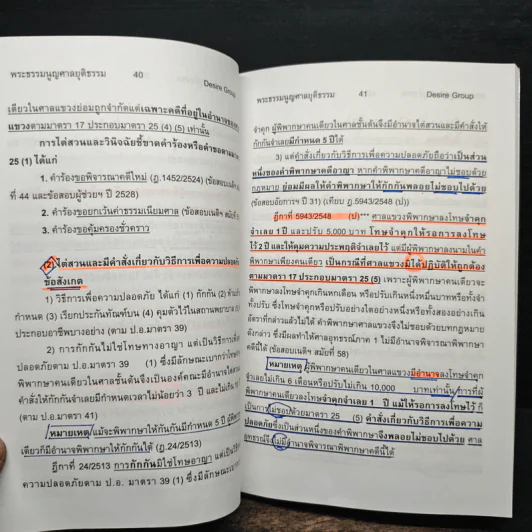 พระธรรมนูญศาลยุติธรรม 40 Desire Group
เดียวในศาลแขวงย่อมถูกจำกัดแต่เฉพาะคดีที่อยู่ในอำนาจของ
แขวงตามมาตรา 17 ประกอบมาตรา 25 (4) (5) เท่านั้น
การไต่สวนและวินิจฉัยชี้ขาดคำร้องหรือคำขอตามมาตรา
25 (1) ได้แก่
1. คำร้องขอพิจารณาคดีใหม่ (ฎ.1452/2524) (ข้อสอบเนติฯ
ที่ 44 และข้อสอบผู้ช่วยฯ ปี 2528)
2. คำร้องขอยกเว้นค่าธรรมเนียมศาล (ข้อสอบเนติฯ สมัยที่
3. คำร้องขอคุ้มครองชั่วคราว
(2) ไต่สวนและมีคำสั่งเกี่ยวกับวิธีการเพื่อความปลอดภัย
ข้อสังเกต
1) วิธีการเพื่อความปลอดภัย ได้แก่ (1) กักกัน (2) ห้าม
กำหนด (3) เรียกประกันทัณฑ์บน (4) คุมตัวไว้ในสถานพยาบาล
ประกอบอาชีพบางอย่าง (ตาม ป.อ.มาตรา 39)
2) การกักกันไม่ใช่โทษทางอาญา แต่เป็นวิธี
ปลอดภัยตาม ป.อ.มาตรา 39 (1) ซึ่งมีลักษณะเบากว่าโทษ
พิพากษาคนเดียวในศาลชั้นต้นจึงเป็นองค์คณะมีอำนาจไต่สวน
คำสั่งให้กักกันจำเลยมีกำหนดเวลาไม่น้อยว่า 3 ปี และไม่เกิน 10
(ตาม ป.อ.มาตรา 41)
หมายเหตุ แม้จะพิพากษาให้กักกันมีกำหนด 5 ปี ผู้พิพากษา
เดียวก็มีอำนาจพิพากษาให้กักกันได้ (ฎ.24/2513)
ฎีกาที่ 24/2513 การกักกันมิใช่โทษอาญา แต่เป็นวิธี
ความปลอดภัยตาม ป.อ. มาตรา 39 (1) ซึ่งมีลักษณะ
พระธรรมนูญศาลยุติธรรม 41 Desire Group
จำคุก ผู้พิพากษาคนเดียวในศาลชั้นต้นจึงมีอำนาจไต่สวนและมีคำสั่งให้
กักกันจำเลยมีกำหนด 5 ปีได้
3) แต่คำสั่งเกี่ยวกับวิธีการเพื่อความปลอดภัยถือว่าเป็นส่วน
หนึ่งของคำพิพากษาคดีอาญา หากคำพิพากษาคดีอาญาไม่ชอบด้วย
กฎหมาย ย่อมมีผลให้คำพิพากษาให้กักกันพลอยไม่ชอบไปด้วย
(ข้อสอบอัยการฯ ปี 31) (เทียบ ฎ.5943/2548 (ป))
ฎีกาที่ 5943/2548 (ป)*** ศาลแขวงพิพากษาลงโทษจำคุก
จำเลย 1 ปี และปรับ 5,000 บาท โทษจำคุกให้รอการลงโทษ
ไว้ 2 ปี และให้คุมความประพฤติจำเลยไว้ แต่มีผู้พิพากษาลงนามในคำ
พิพากษาเพียงคนเดียว เป็นกรณีที่ศาลแขวงมิได้ปฏิบัติให้ถูกต้อง
ตามมาตรา 17 ประกอบมาตรา 25 (5) เพราะผู้พิพากษาคนเดียวจะ
พิพากษาลงโทษจำคุกเกินหกเดือน หรือปรับเกินหนึ่งหมื่นบาทหรือทั้งจำ
ทั้งปรับ ซึ่งโทษจำคุกหรือปรับอย่างใดอย่างหนึ่งหรือทั้งสองอย่างเกิน
อัตราที่กล่าวแล้วไม่ได้ คำพิพากษาศาลแขวงจึงไม่ชอบด้วยบทกฎหมาย
ดังกล่าว ซึ่งมีผลทำให้ศาลอุทธรณ์ภาค 1 ไม่มีอำนาจพิจารณาพิพากษา
คดีนี้ได้ (ข้อสอบเนติฯ สมัยที่ 58)
หมายเหตุ ผู้พิพากษาคนเดียวในศาลแขวงมีอำนาจลงโทษจำคุก
จำเลยไม่เกิน 6 เดือนหรือปรับไม่เกิน 10,000 บาทเท่านั้น การที่ผู้
พิพากษาคนเดียวพิพากษาลงโทษจำคุกจำเลย 1 ปี แม้ให้รอการลงโทษไว้ ก็
เป็นการไม่ชอบด้วยมาตรา 25 (5) คำสั่งเกี่ยวกับวิธีการเพื่อความ
ปลอดภัยซึ่งเป็นส่วนหนึ่งของคำพิพากษาจึงพลอยไม่ชอบไปด้วย ศาล
อุทธรณ์จึงไม่มีอำนาจพิจารณาพิพากษาคดีนี้ได้